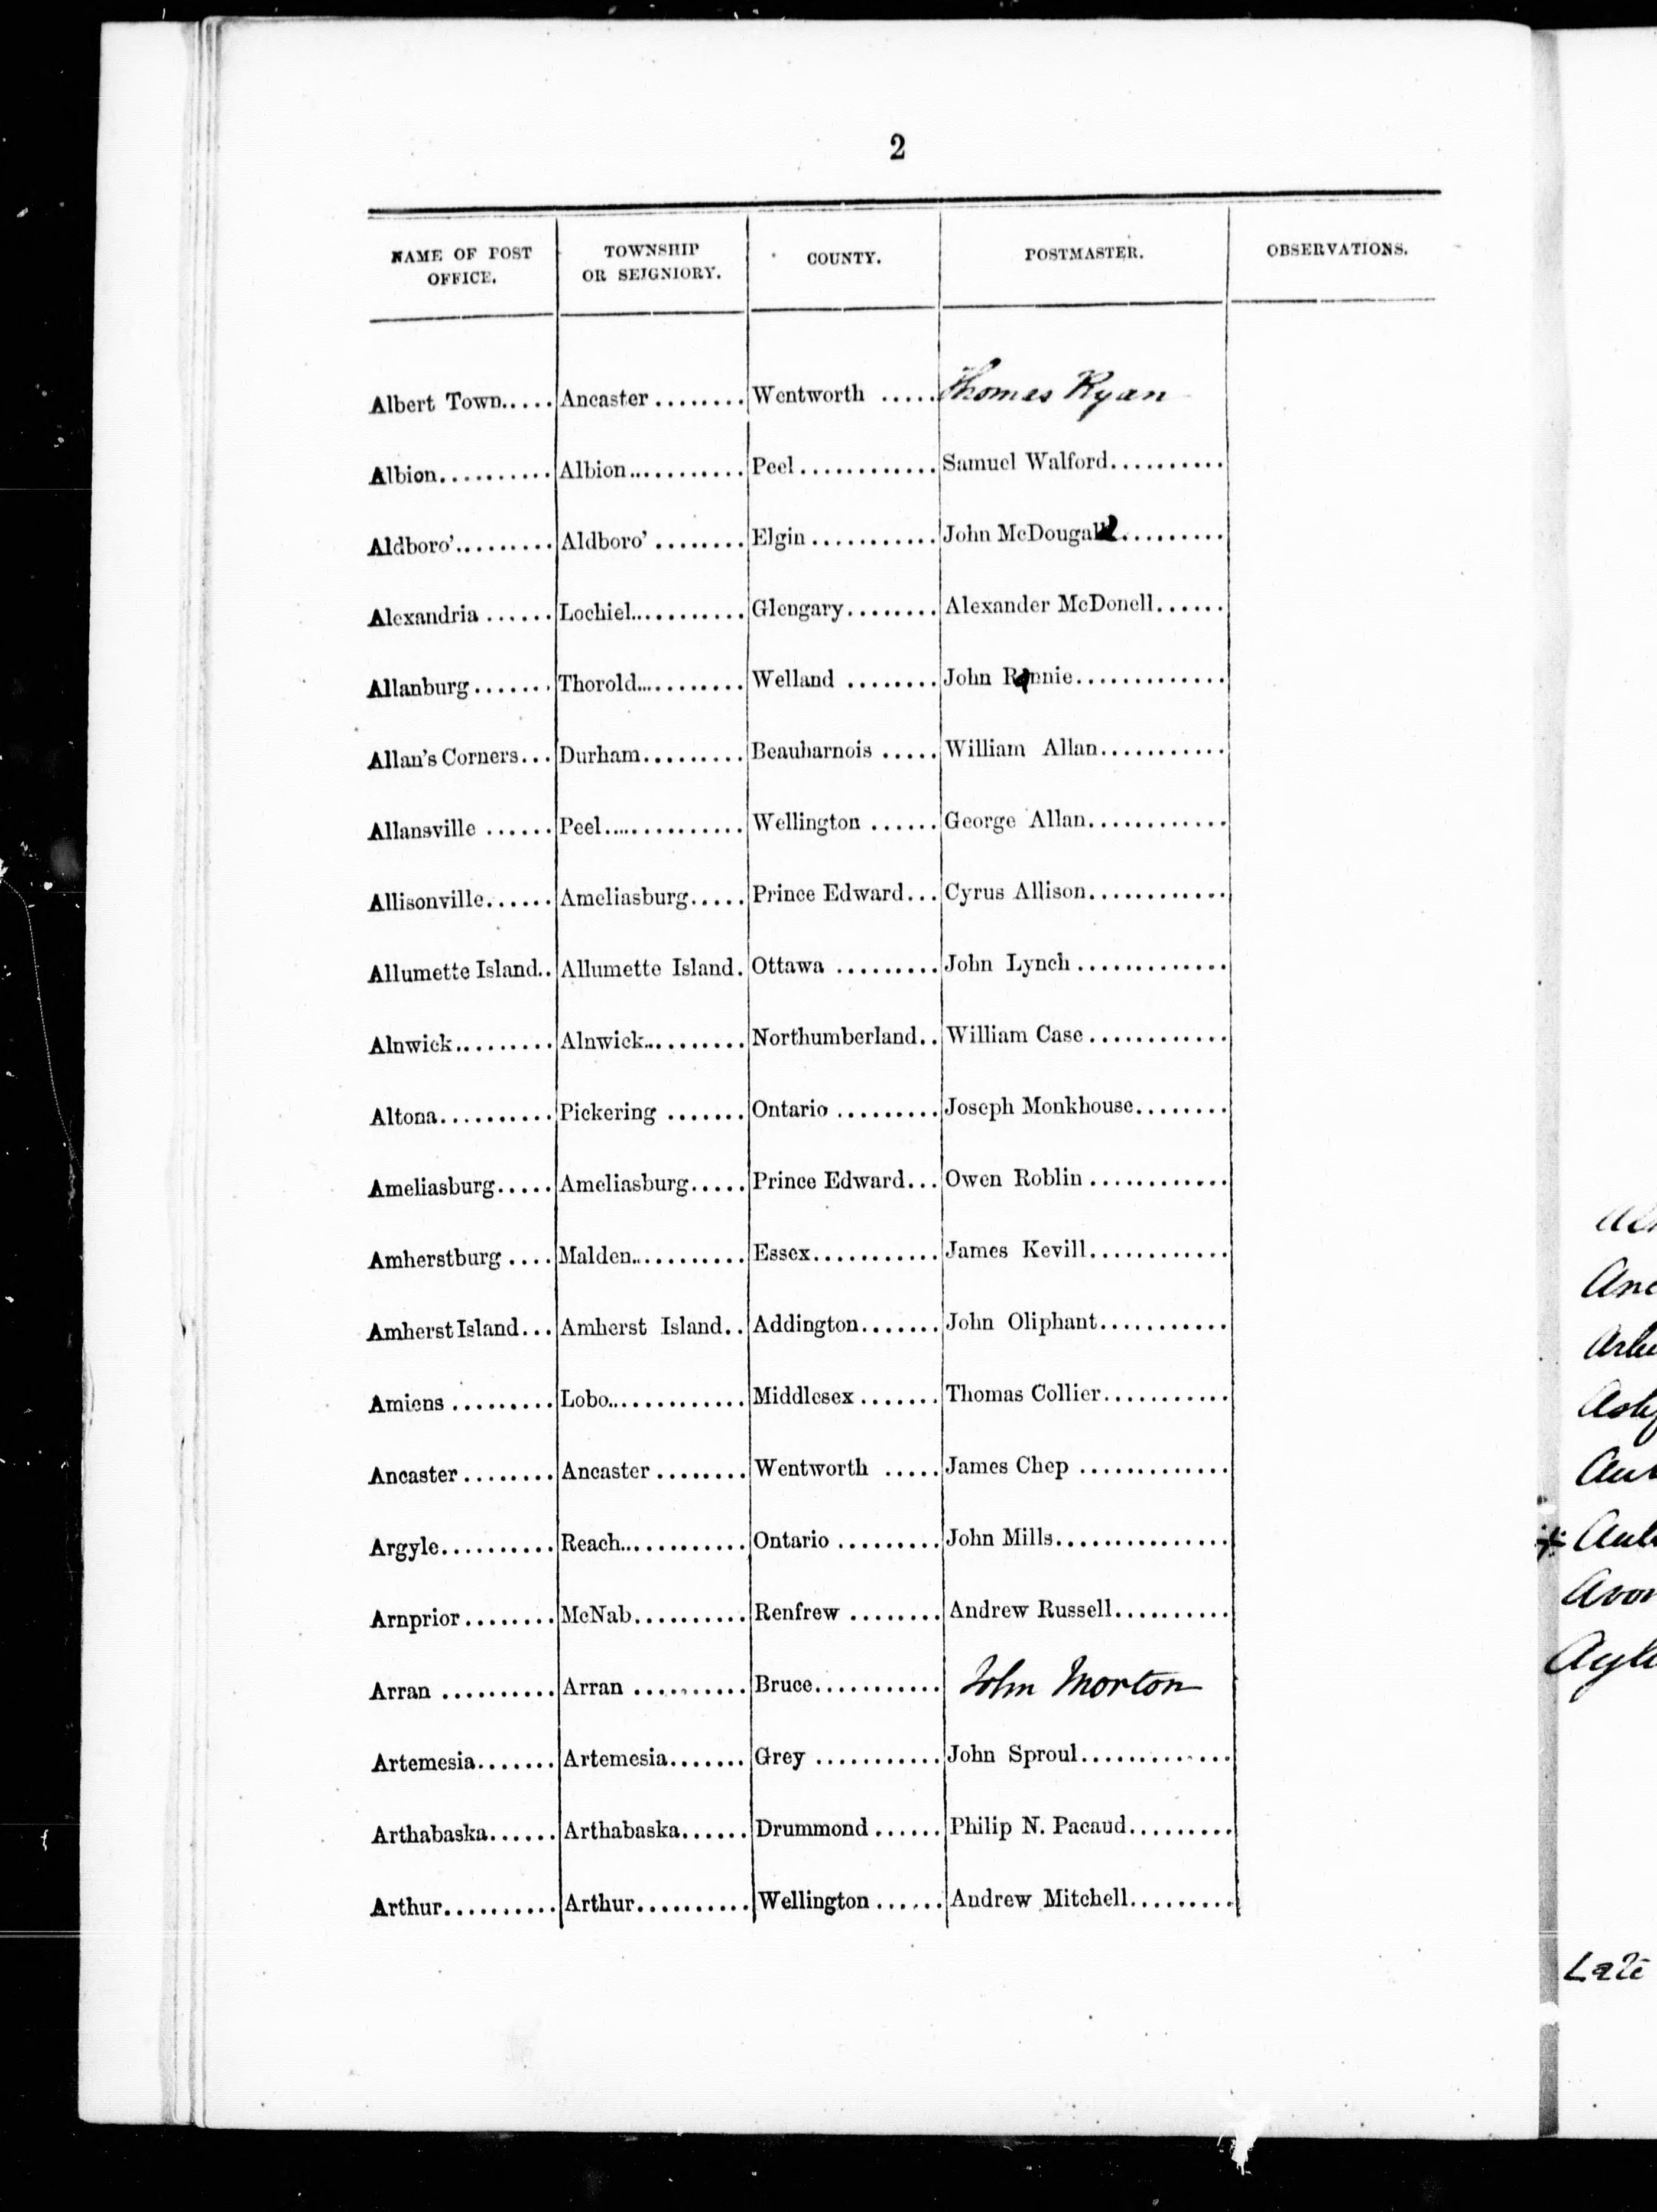 2
NAME OF POST OFFICE. TOWNSHIP OR SEIGNIORY. COUNTY. POSTMASTER. OBSERVATIONS.
Albert Town..... Ancaster ........ Wentworth ..... Thomas Ryan
Albion.......... Albion........... Peel............ Samuel Walford..........
Aldboro'......... Aldboro' ........ Elgin ........... John McDougall..........
Alexandria ...... Lochiel........... Glengary........ Alexander McDonell......
Allanburg....... Thorold........... Welland ........ John Rannie.............
Allan's Corners... Durham......... Beauharnois ..... William Allan...........
Allansville ...... Peel............. Wellington ...... George Allan............
Allisonville...... Ameliasburg..... Prince Edward... Cyrus Allison............
Allumette Island.. Allumette Island. Ottawa ......... John Lynch .............
Alnwick......... Alnwick.......... Northumberland.. William Case ............
Altona.......... Pickering ....... Ontario ......... Joseph Monkhouse........
Ameliasburg..... Ameliasburg..... Prince Edward... Owen Roblin ............
Amherstburg .... Malden........... Essex........... James Kevill............
Amherst Island... Amherst Island.. Addington....... John Oliphant...........
Amiens ......... Lobo............. Middlesex ....... Thomas Collier...........
Ancaster ........ Ancaster ........ Wentworth ..... James Chep .............
Argyle.......... Reach............ Ontario ......... John Mills...............
Arnprior........ McNab.......... Renfrew ........ Andrew Russell..........
Arran .......... Arran .......... Bruce........... John Morton
Artemesia....... Artemesia....... Grey ........... John Sproul.............
Arthabaska...... Arthabaska...... Drummond ...... Philip N. Pacaud.........
Arthur.......... Arthur.......... Wellington ...... Andrew Mitchell.........
Late